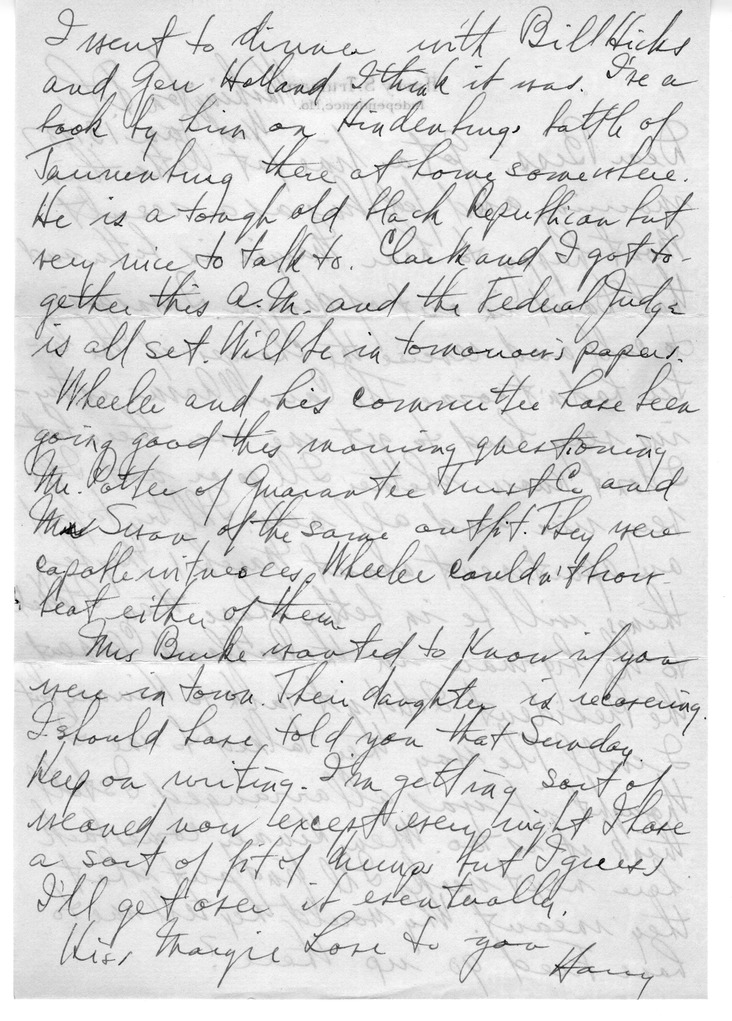 I went to dinner with Bill Hicks
and Gen Holland I think it was. I've a
book by him on Hindenburgs battle of
Tannenburg there at home somewhere.
He is a tough old black Republican but
very nice to talk to. Clark and I got to-
gether this A.M. and the Federal Judge
is all set. Will be in tomorrow's papers.
Wheeler and his committee have been
going good this morning questioning
Mr. Potter of Guarantee Trust Co and
Swan of the same outfit. They were
capable witnesses. Wheeler couldn't brow-
beat either of them.
Mrs Burke wanted to know if you
were in town. Their daughter is recovering.
I should have told you that Sunday.
Keep on writing. I'm getting sort of
weaned now except every night I have
a sort of fit of mumps but I guess
I'll get over it eventually.
Kiss Margie Love to you
Harry